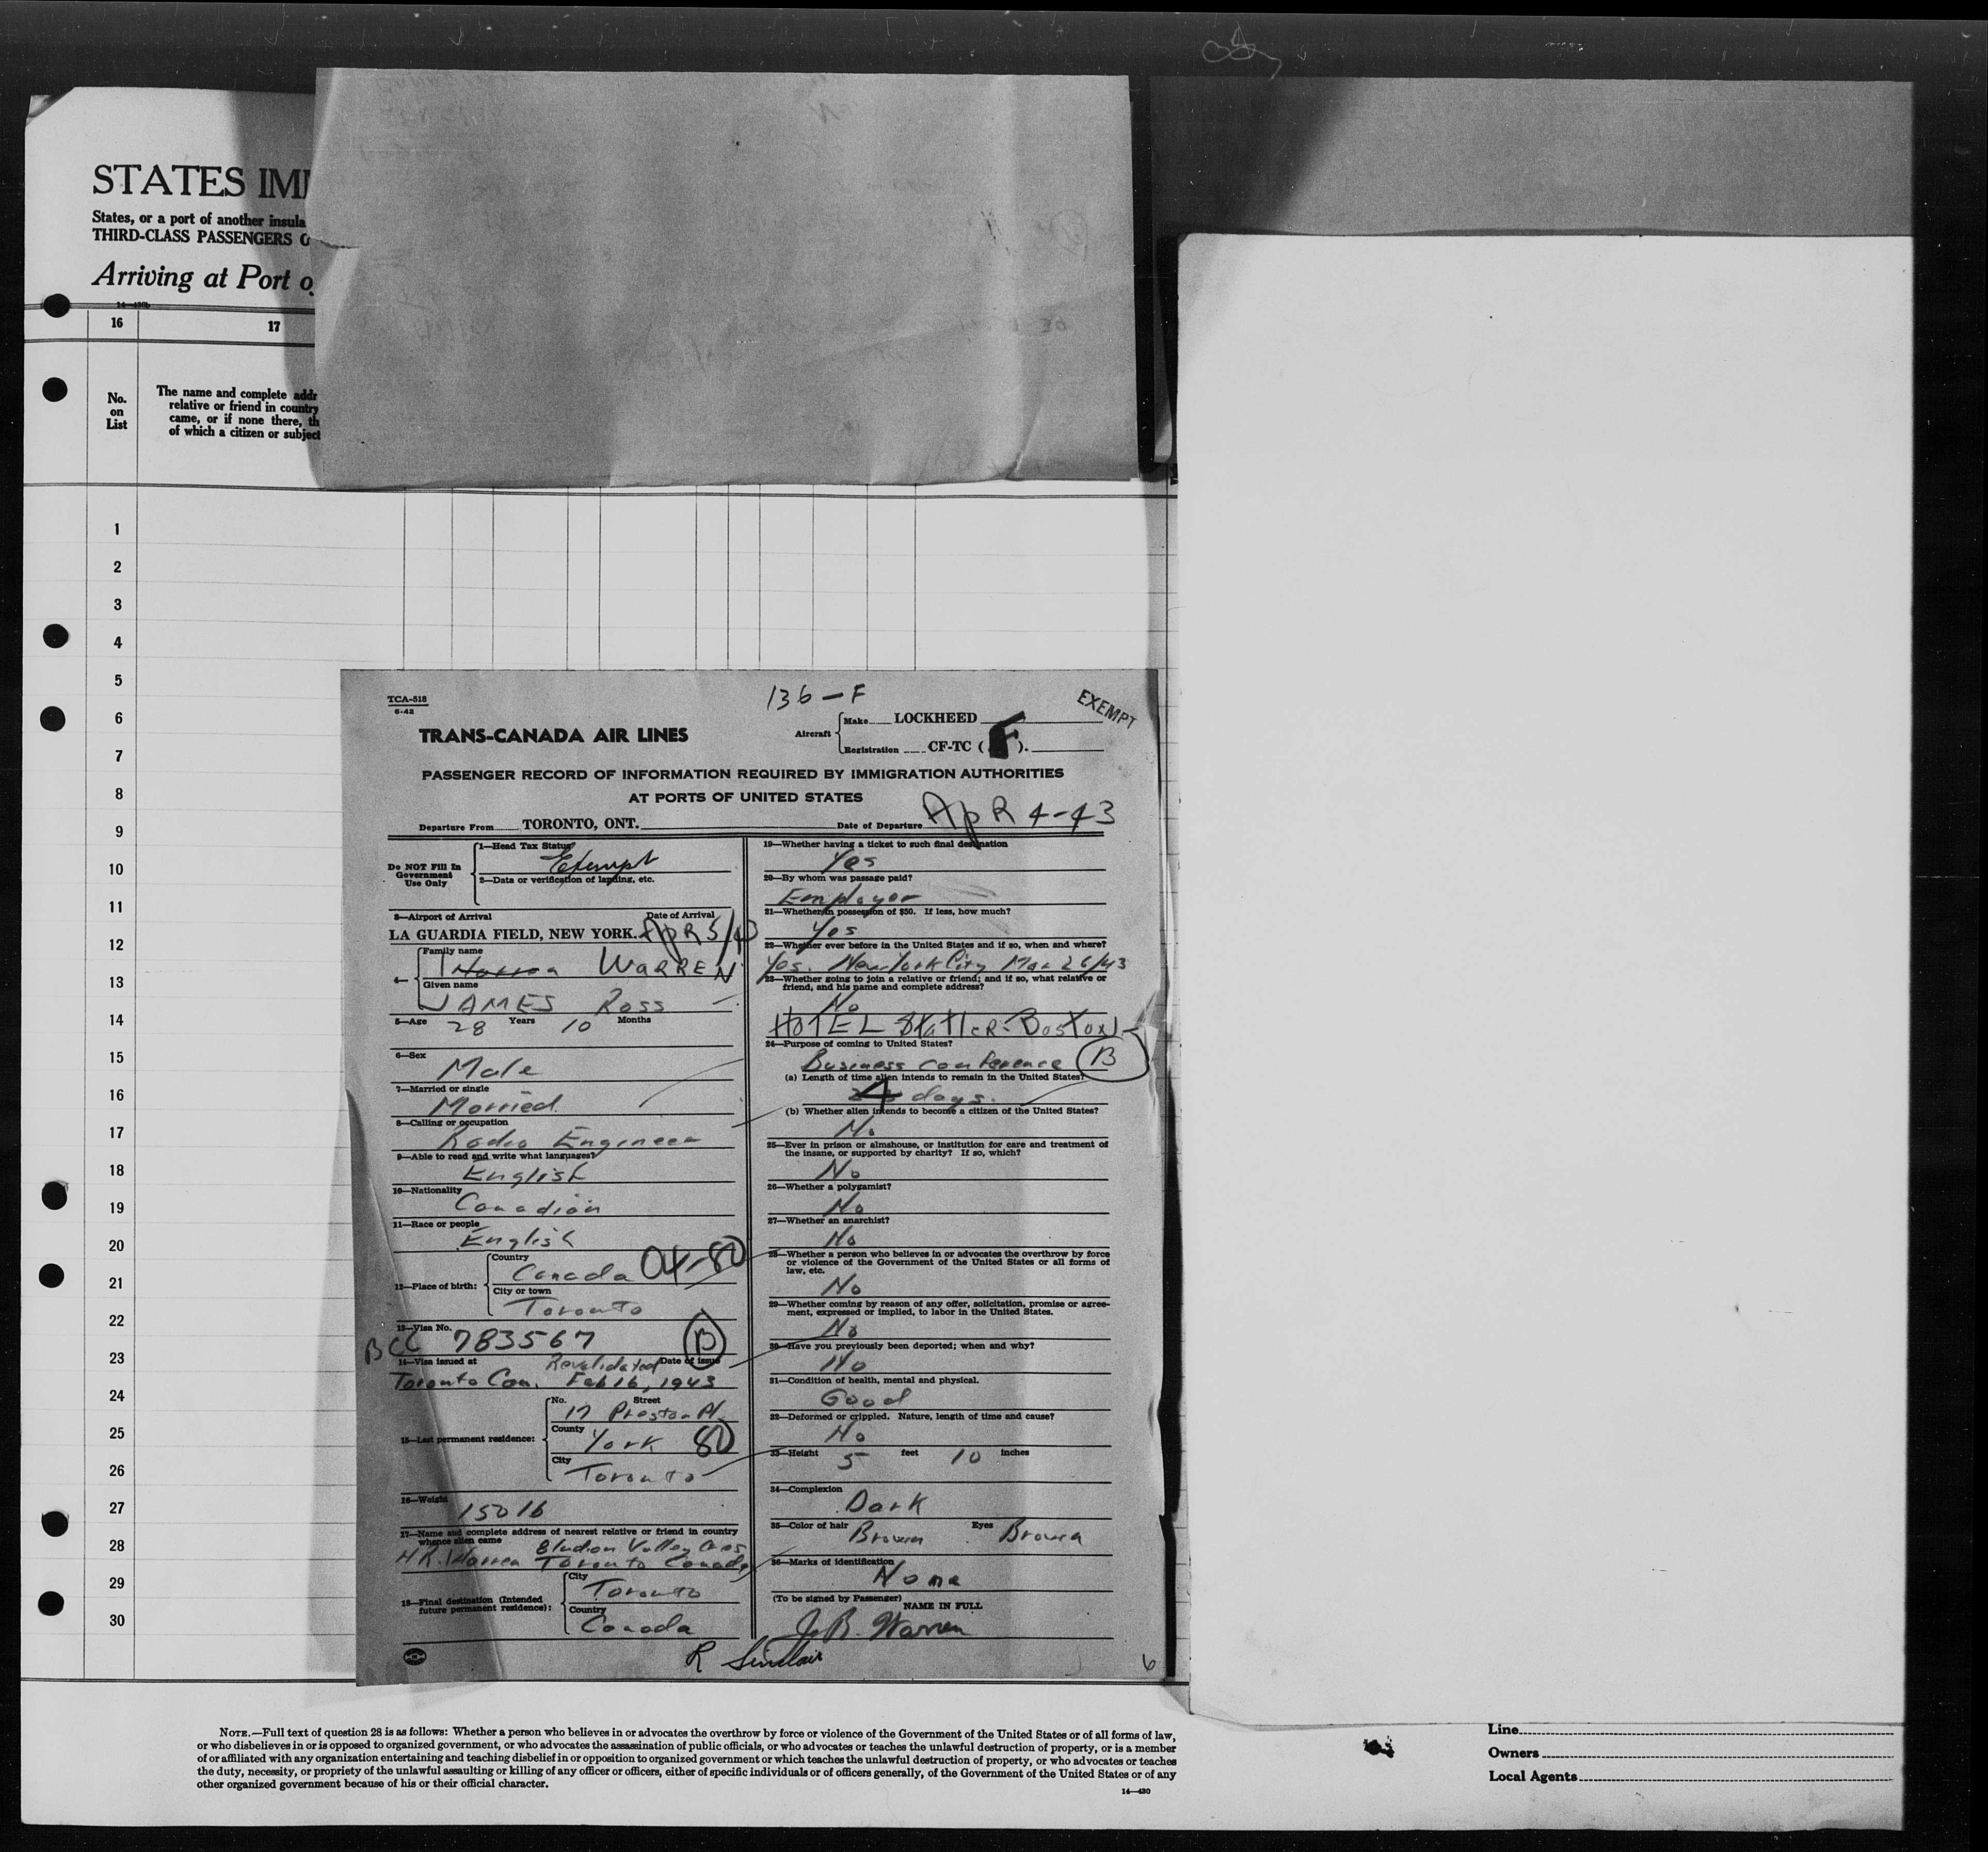 STATES IMM
States, or a port of another insula
THIRD-CLASS PASSENGERS O
Arriving at Port o
14—430b
16 17
No.
on
List
The name and complete addr
relative or friend in country
came, or if none there, th
of which a citizen or subject
1
2
3
4
5
6
7
8
9
10
11
12
13
14
15
16
17
18
19
20
21
22
23
24
25
26
27
28
29
30
TCA-518
6-42
136-F
EXEMPT
TRANS-CANADA AIR LINES
Aircraft
Make LOCKHEED
Registration CF-TC (F).
PASSENGER RECORD OF INFORMATION REQUIRED BY IMMIGRATION AUTHORITIES
AT PORTS OF UNITED STATES
Departure From TORONTO, ONT. Date of Departure ApR 4-43
Do NOT Fill In
Government
Use Only
1—Head Tax Status
Exempt
2—Data or verification of landing, etc.
3—Airport of Arrival Date of Arrival
LA GUARDIA FIELD, NEW YORK. ApR 5/43
4—
Family name
Warren WARREN
Given name
JAMES ROSS
5—Age 28 Years 10 Months
6—Sex
Male
7—Married or single
Married
8—Calling or occupation
Radio Engineer
9—Able to read and write what languages?
English
10—Nationality
Canadian
11—Race or people
English
12—Place of birth:
Country
Canada 04-80
City or town
Toronto
13—Visa No.
BCC 783567 B
14—Visa issued at Revalidated Date of issue
Toronto Can. Feb 16, 1943
15—Last permanent residence:
No. Street
17 Preston Pl.
County
York 80
City
Toronto
16—Weight
150 lb
17—Name and complete address of nearest relative or friend in country
whence alien came
Valley
H.R. Warren Toronto Canada
18—Final destination (Intended
future permanent residence):
City
Toronto
Country
Canada
19—Whether having a ticket to such final destination
Yes
20—By whom was passage paid?
Employer
21—Whether in possession of $50. If less, how much?
Yes
22—Whether ever before in the United States and if so, when and where?
Yes. New York City Mar 26/43
23—Whether going to join a relative or friend; and if so, what relative or
friend, and his name and complete address?
No
HOTEL StatleR-Boston
24—Purpose of coming to United States?
Business conference B
(a) Length of time alien intends to remain in the United States?
4 days.
(b) Whether alien intends to become a citizen of the United States?
No
25—Ever in prison or almshouse, or institution for care and treatment of
the insane, or supported by charity? If so, which?
No
26—Whether a polygamist?
No
27—Whether an anarchist?
No
28—Whether a person who believes in or advocates the overthrow by force
or violence of the Government of the United States or all forms of
law, etc.
No
29—Whether coming by reason of any offer, solicitation, promise or agree-
ment, expressed or implied, to labor in the United States.
No
30—Have you previously been deported; when and why?
No
31—Condition of health, mental and physical.
Good
32—Deformed or crippled. Nature, length of time and cause?
No
33—Height 5 feet 10 inches
34—Complexion
Dark
35—Color of hair Brown Eyes Brown
36—Marks of identification
None
(To be signed by Passenger)
NAME IN FULL
J.R. Warren
R Sinclair
6
NOTE.—Full text of question 28 is as follows: Whether a person who believes in or advocates the overthrow by force or violence of the Government of the United States or of all forms of law,
or who disbelieves in or is opposed to organized government, or who advocates the assassination of public officials, or who advocates or teaches the unlawful destruction of property, or is a member
of or affiliated with any organization entertaining and teaching disbelief in or opposition to organized government or which teaches the unlawful destruction of property, or who advocates or teaches
the duty, necessity, or propriety of the unlawful assaulting or killing of any officer or officers, either of specific individuals or of officers generally, of the Government of the United States or of any
other organized government because of his or their official character.
14—430
Line
Owners
Local Agents